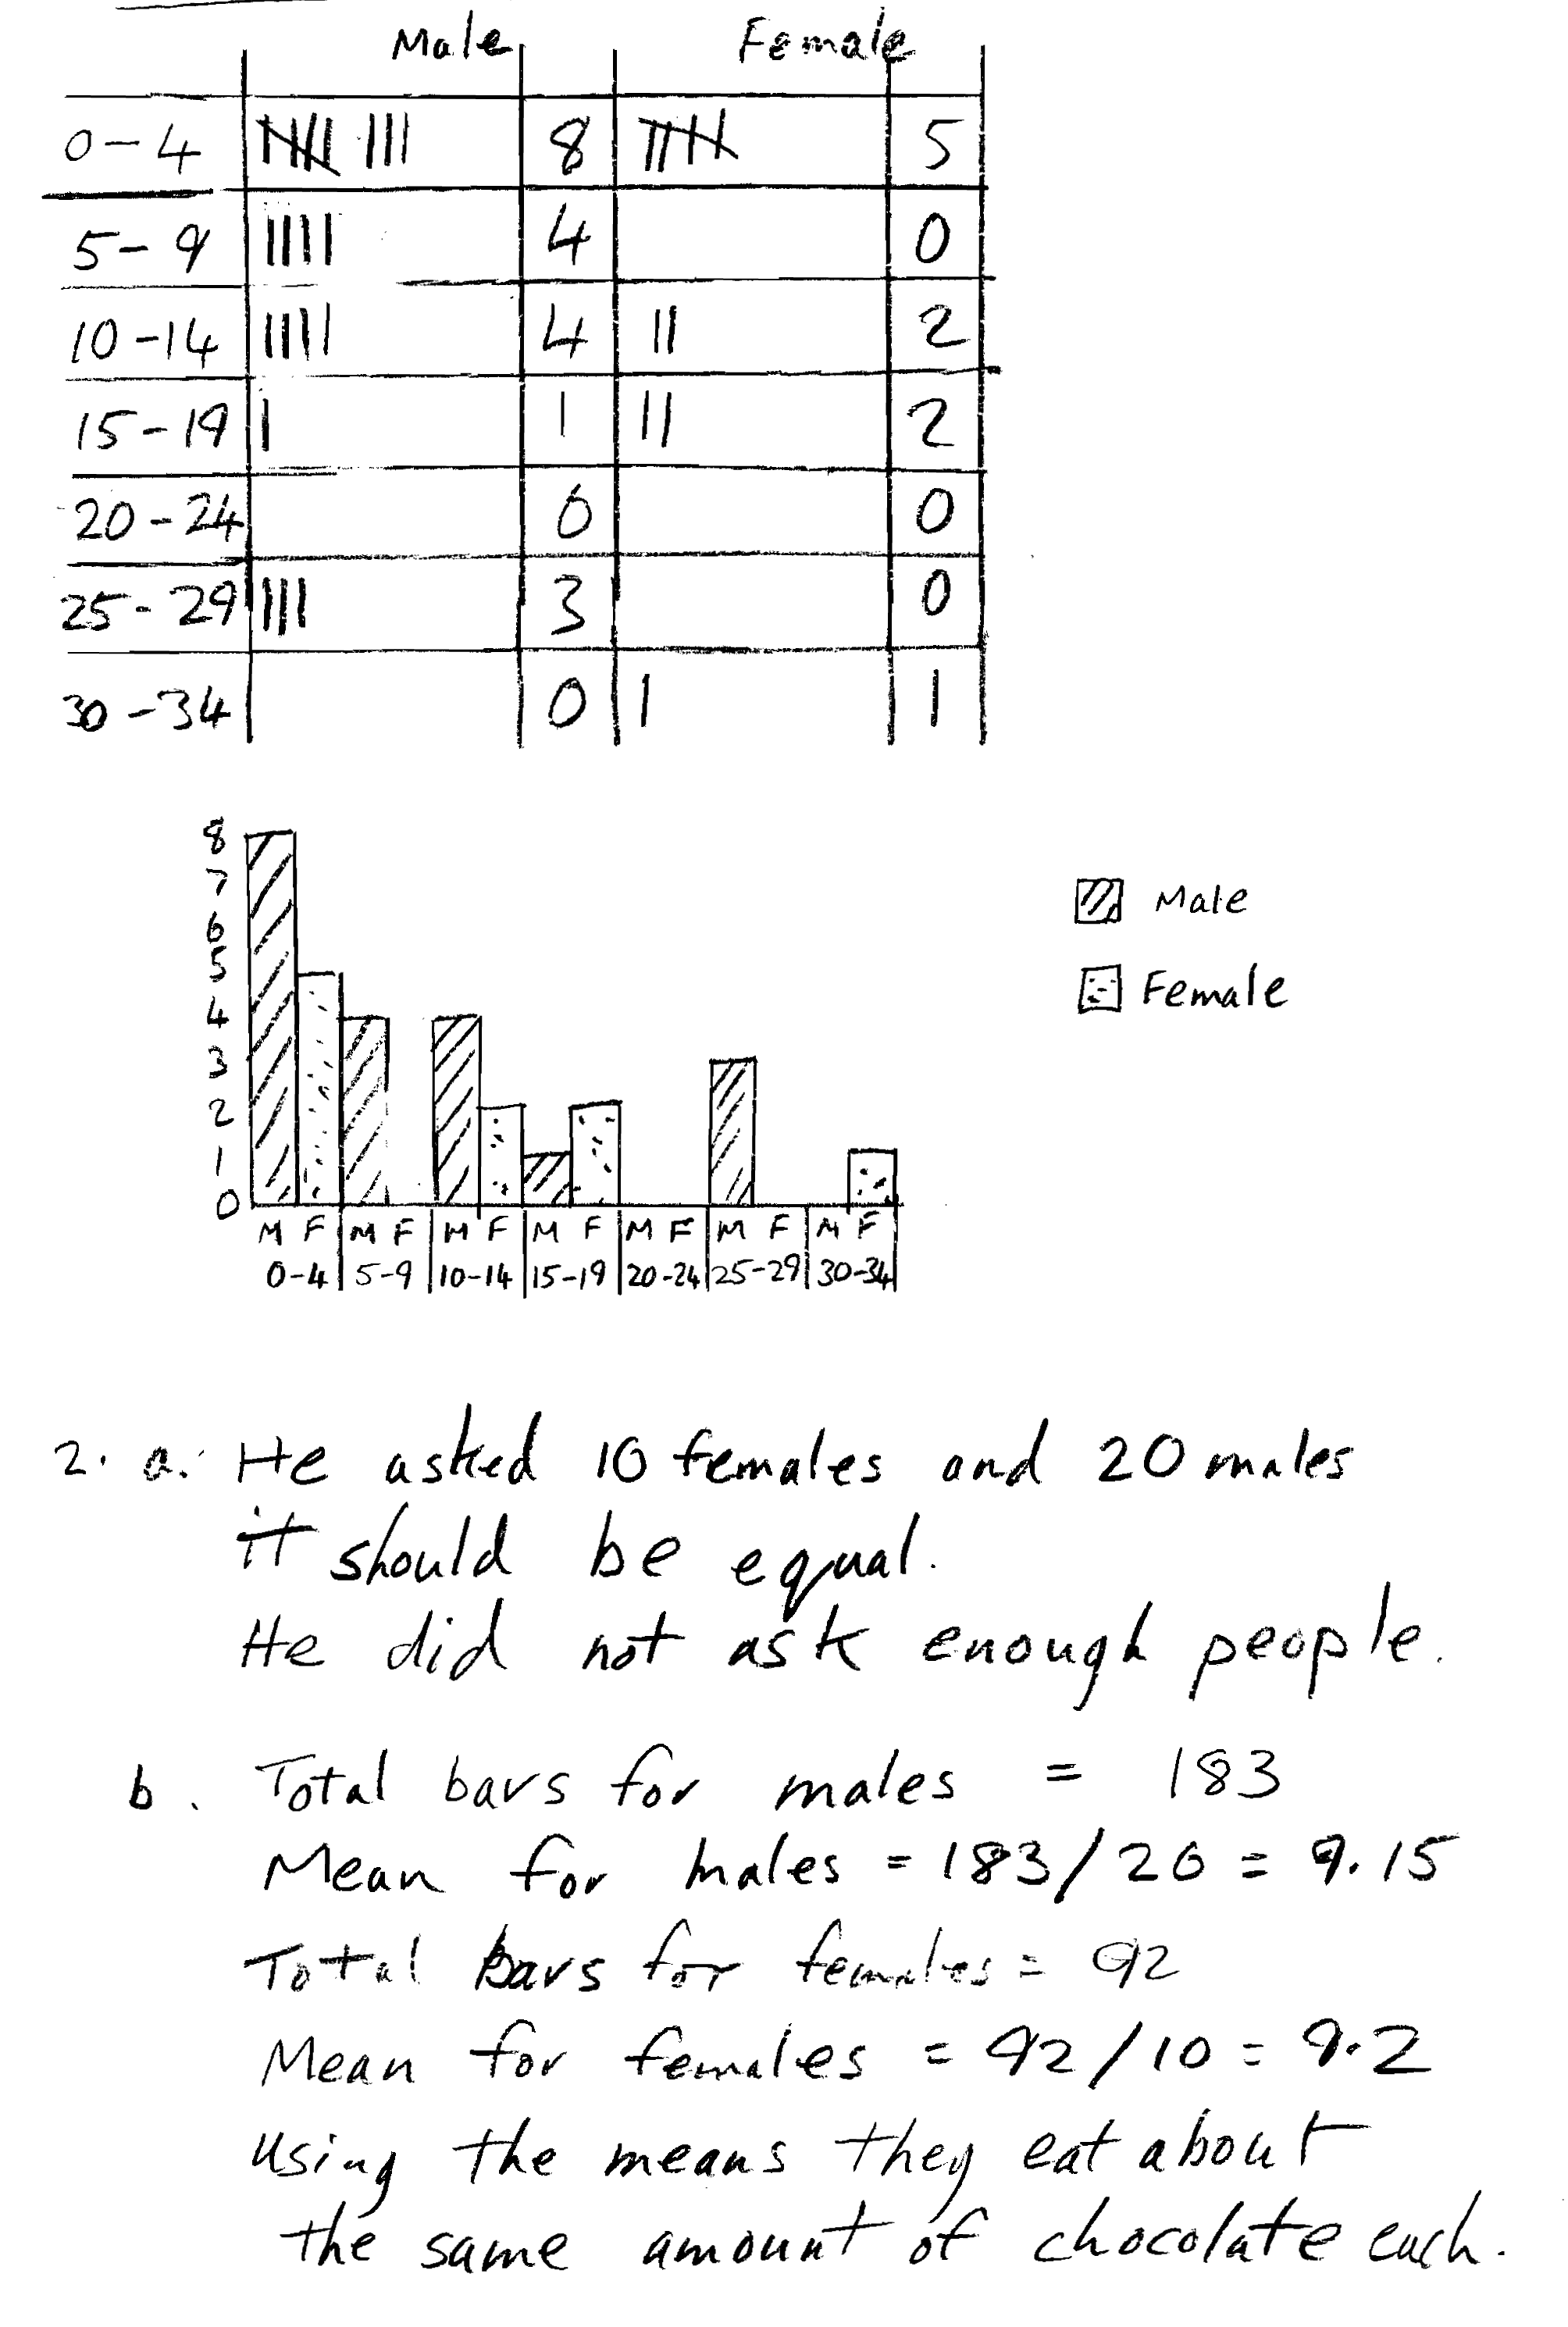 Male Female
0-4 8 5
5-9 4 0
10-14 4 2
15-19 1 2
20-24 0 0
25-29 3 0
30-34 0 1
8
7
6
5
4
3
2
1
0
Male
Female
M F M F M F M F M F M F M F
0-4 5-9 10-14 15-19 20-24 25-29 30-34
2. a. He asked 10 females and 20 males
it should be equal.
He did not ask enough people.
b. Total bars for males = 183
Mean for males = 183/20 = 9.15
Total bars for females = 92
Mean for females = 92/10 = 9.2
Using the means they eat about
the same amount of chocolate each.